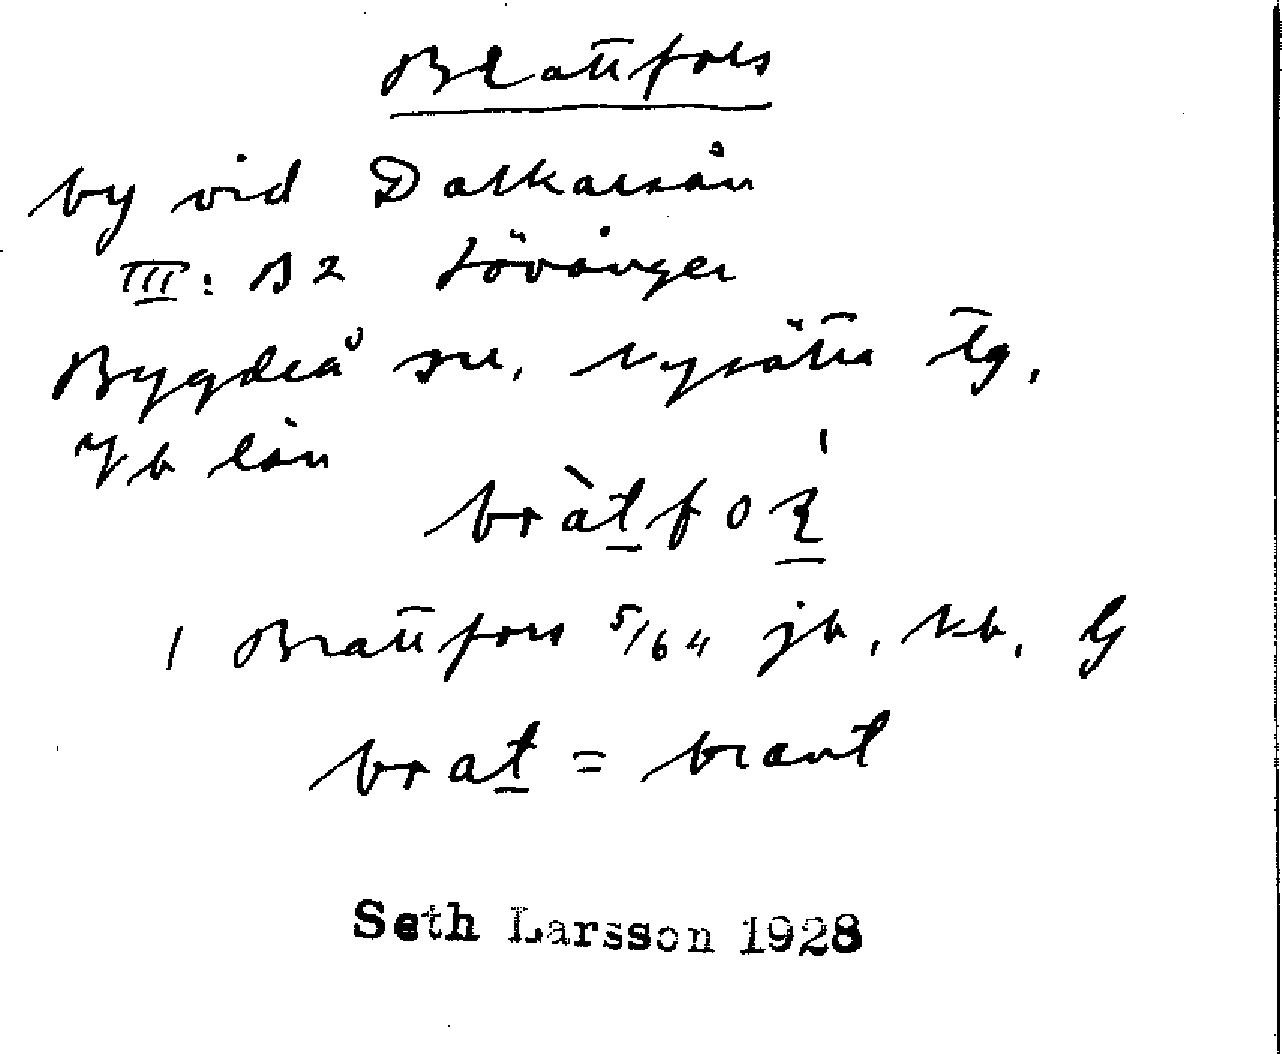 Brattfors
by vid Dalkarsån
III: B2 Lövånger
Bygdeå sn, Nysätra tg,
Vb län
bràtfoʂ
1 Brattfors 5/64 jb, kb, G
brat = brant
Seth Larsson 1928